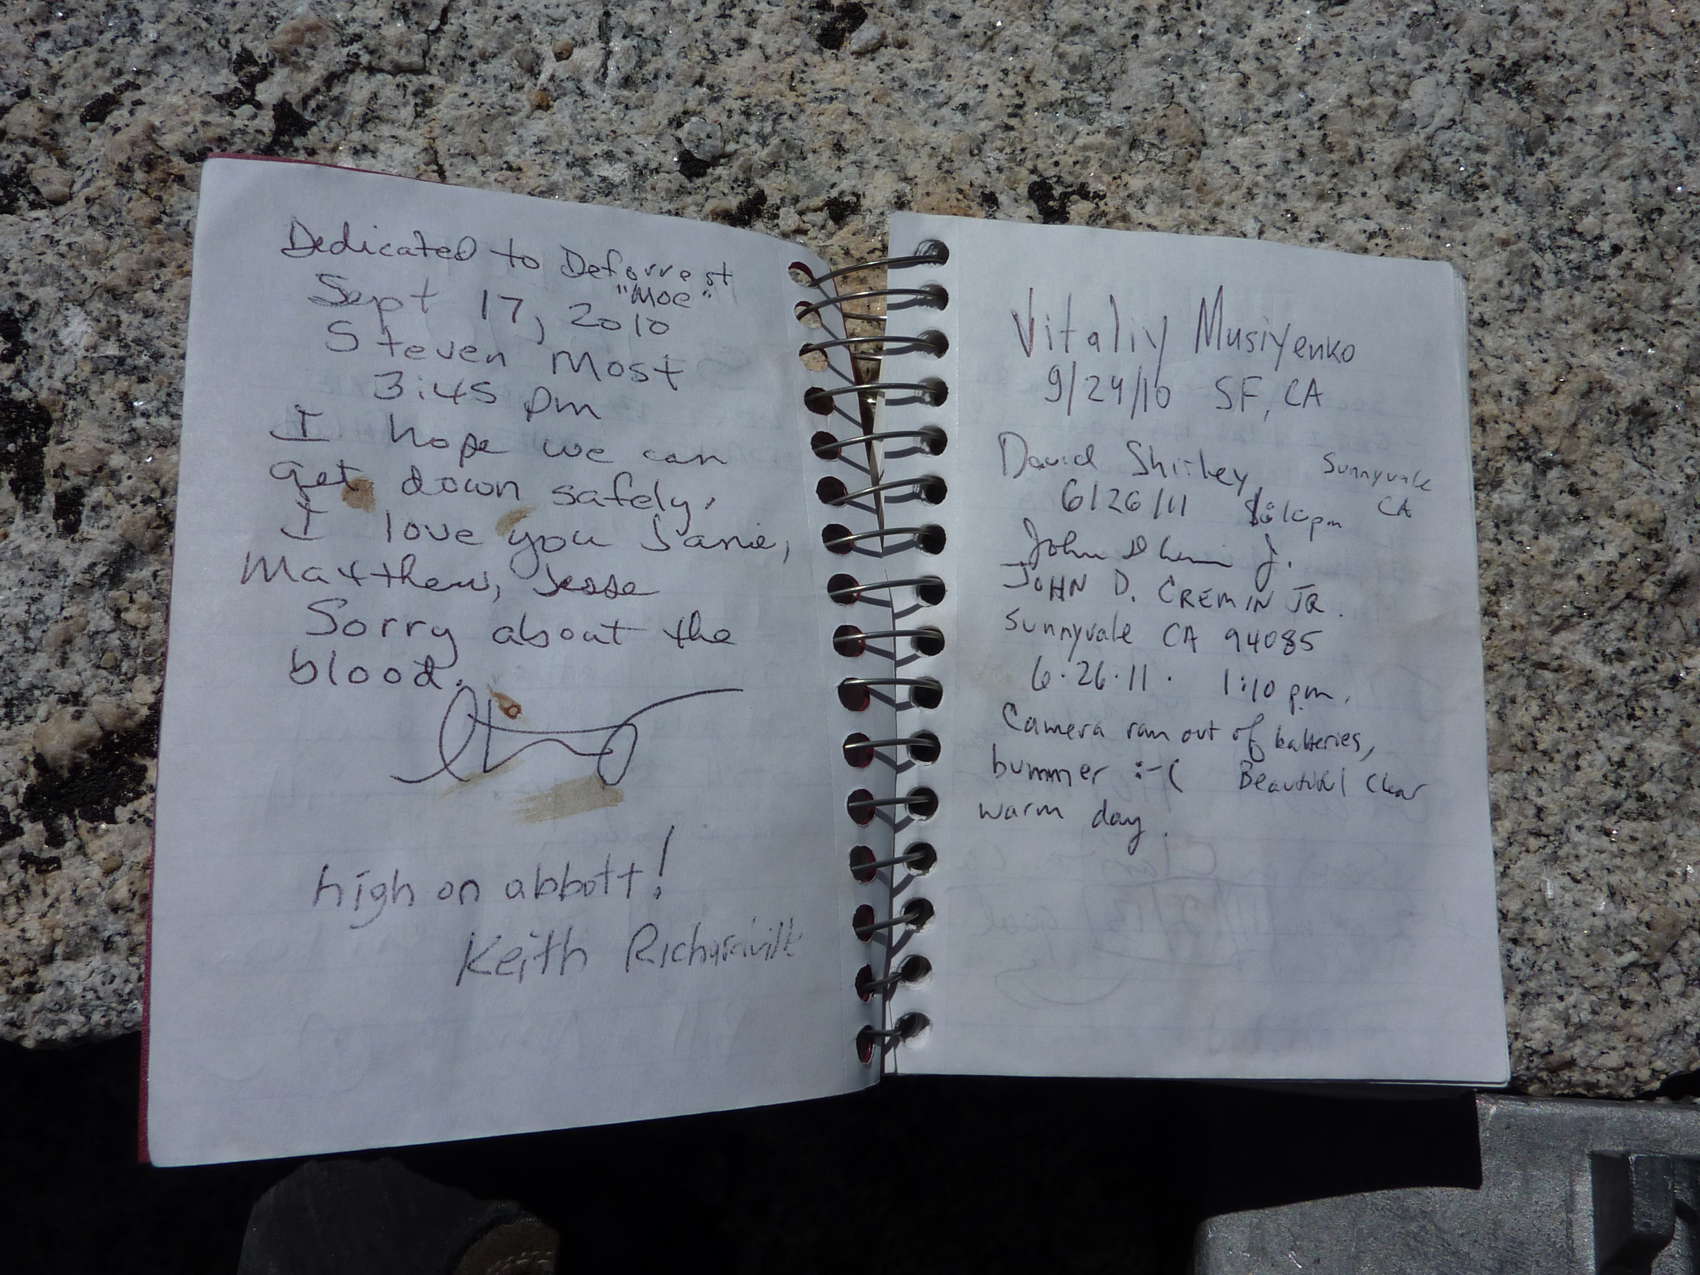 Dedicated to Deforrest
"Moe"
Sept 17, 2010
Steven Most
3:45 pm
I hope we can
get down safely,
I love you Janie,
Matthew, Jesse
Sorry about the
blood.
high on abbott!
Keith
Vitaliy Musiyenko
9/24/10 SF, CA
David Shirley Sunnyvale
6/26/11 CA
John
JOHN D. CREMIN JR.
Sunnyvale CA 94085
6·26·11· 1:10 pm.
Camera ran out of batteries,
bummer :-( Beautiful clear
warm day.